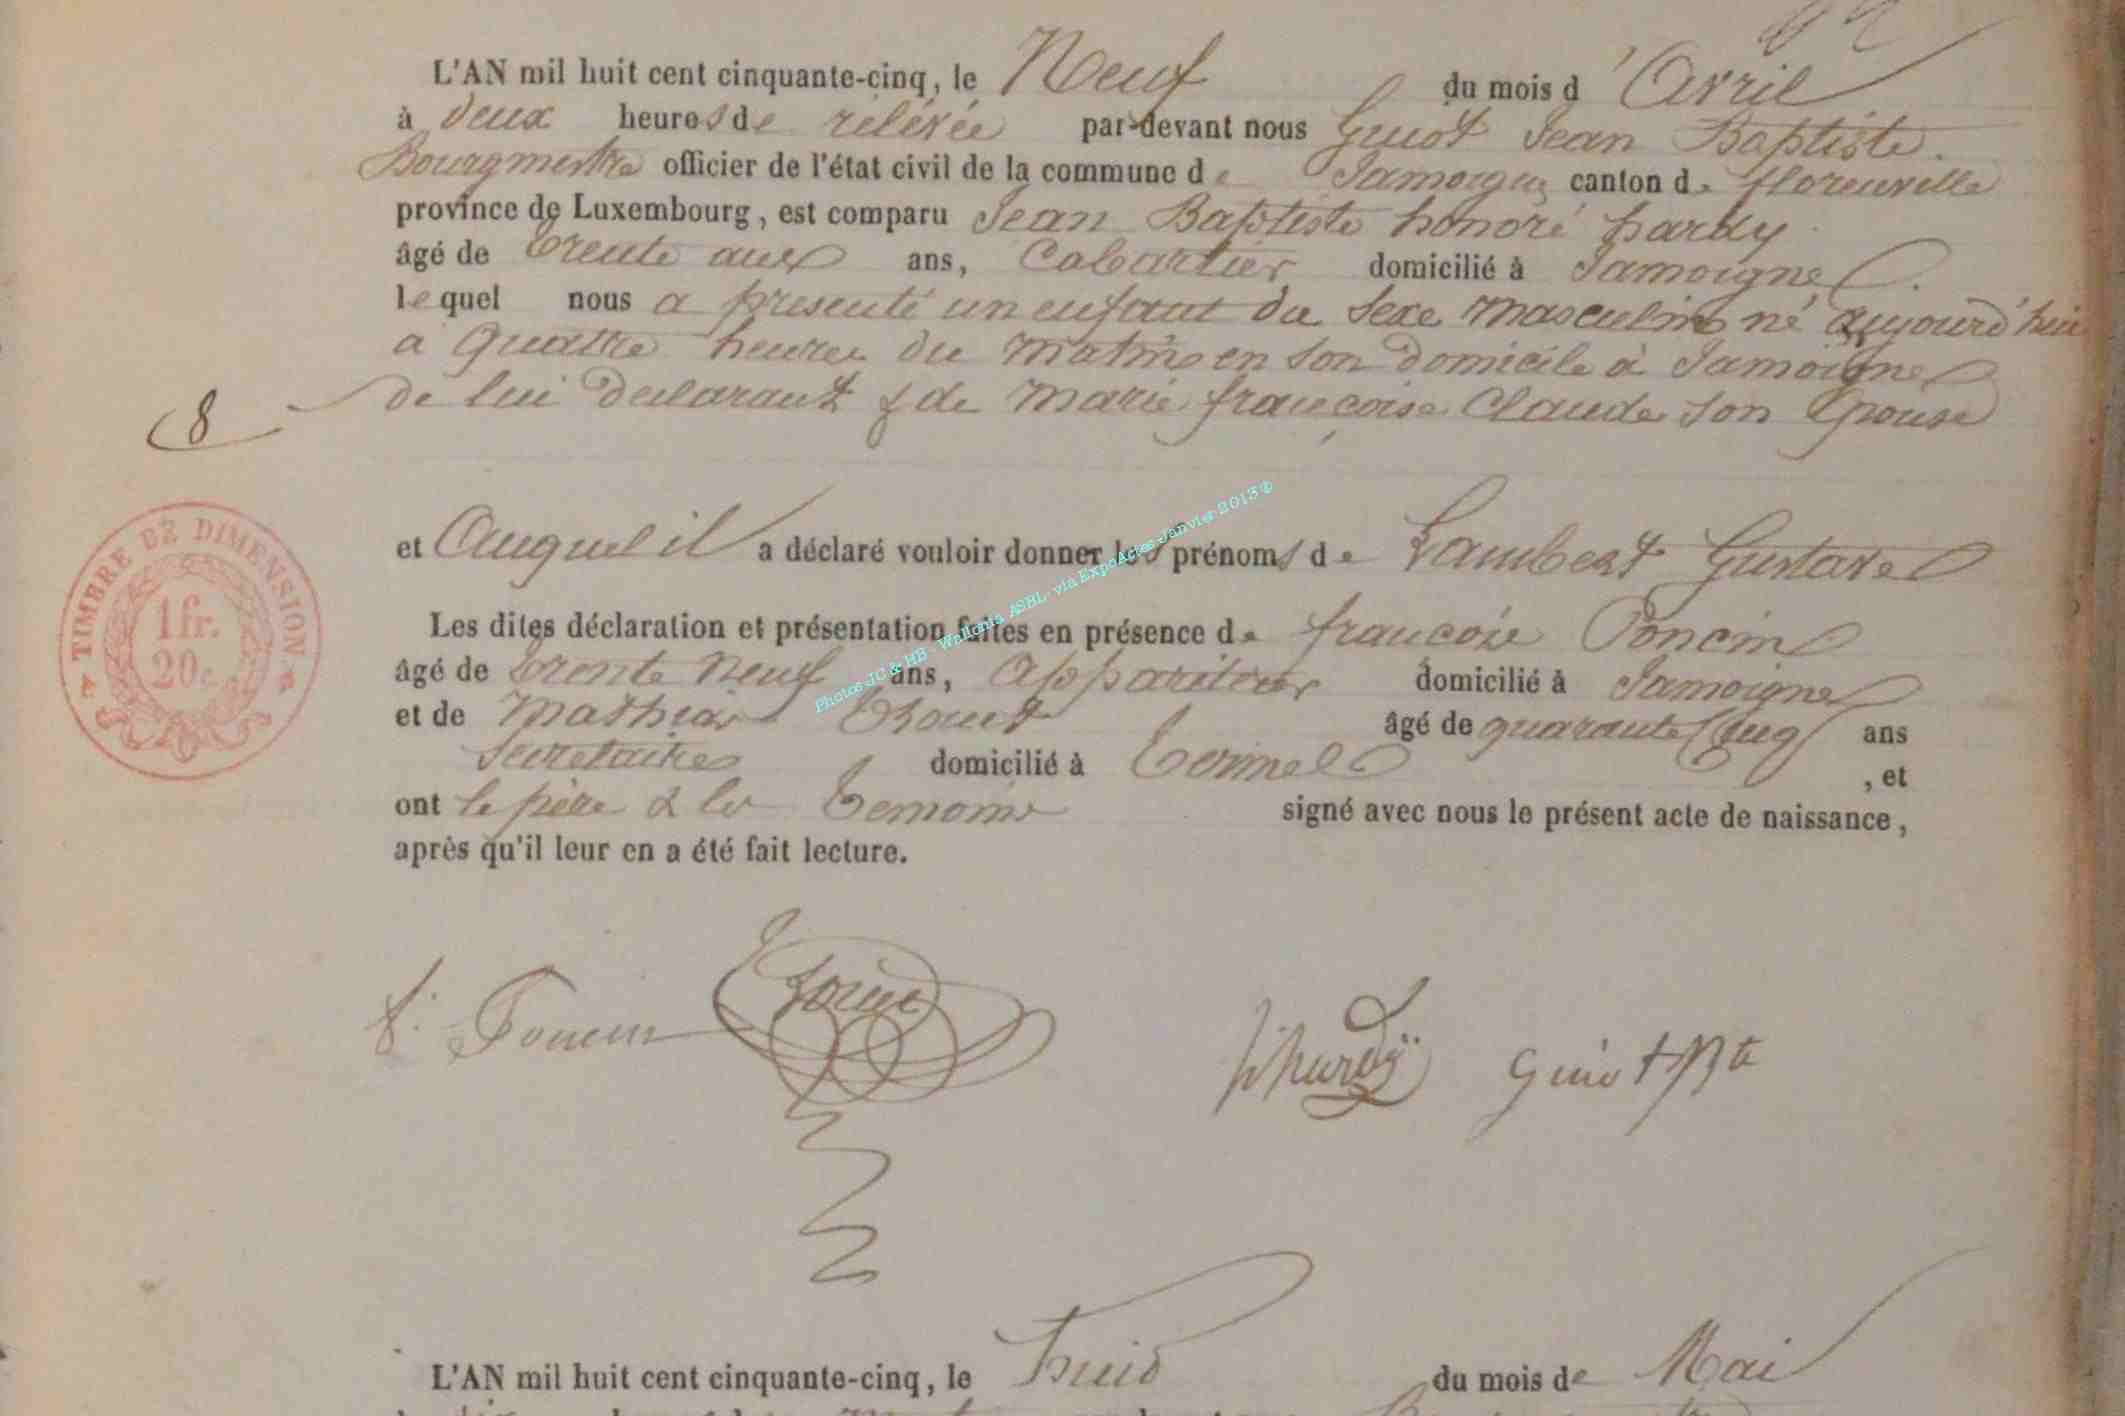 L'AN mil huit cent cinquante-cinq, le Neuf du mois d'Avril
à deux heures de rélévée par-devant nous Guiot Jean Baptiste.
Bourgmestre officier de l'état civil de la commune de Jamoigne canton de florenville
province de Luxembourg, est comparu Jean Baptiste honoré hardy
âgé de trente ans, Cabartier domicilié à Jamoigne
lequel nous a presenté un enfant du sexe masculin né aujourd'hui
a quatre heures du matin en son domicile à Jamoigne
8
de lui declarant & de marie françoise Claude son Epouse
et Auquel il a déclaré vouloir donner les prénoms de Lambert Gustave
TIMBRE DE DIMENSION
1fr.
20c.
Les dites déclaration et présentation faites en présence de francois Poncin
âgé de trente neuf ans, Appariteur domicilié à Jamoigne
et de Mathias âgé de quarante Cinq ans
Secretaire domicilié à Termel , et
ont le père & les temoins signé avec nous le présent acte de naissance,
après qu'il leur en a été fait lecture.
Photos JC & HB - Wallonia ASBL - via ExpoActes Janvier 2013 ©
f. Poncin hardÿ Guiot JBte
L'AN mil huit cent cinquante-cinq, le huit du mois de Mai